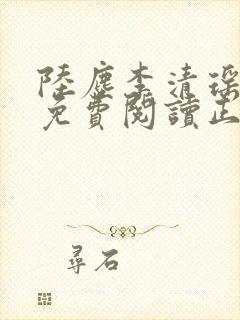 陸塵李清瑤
免費閱讀正
尋石